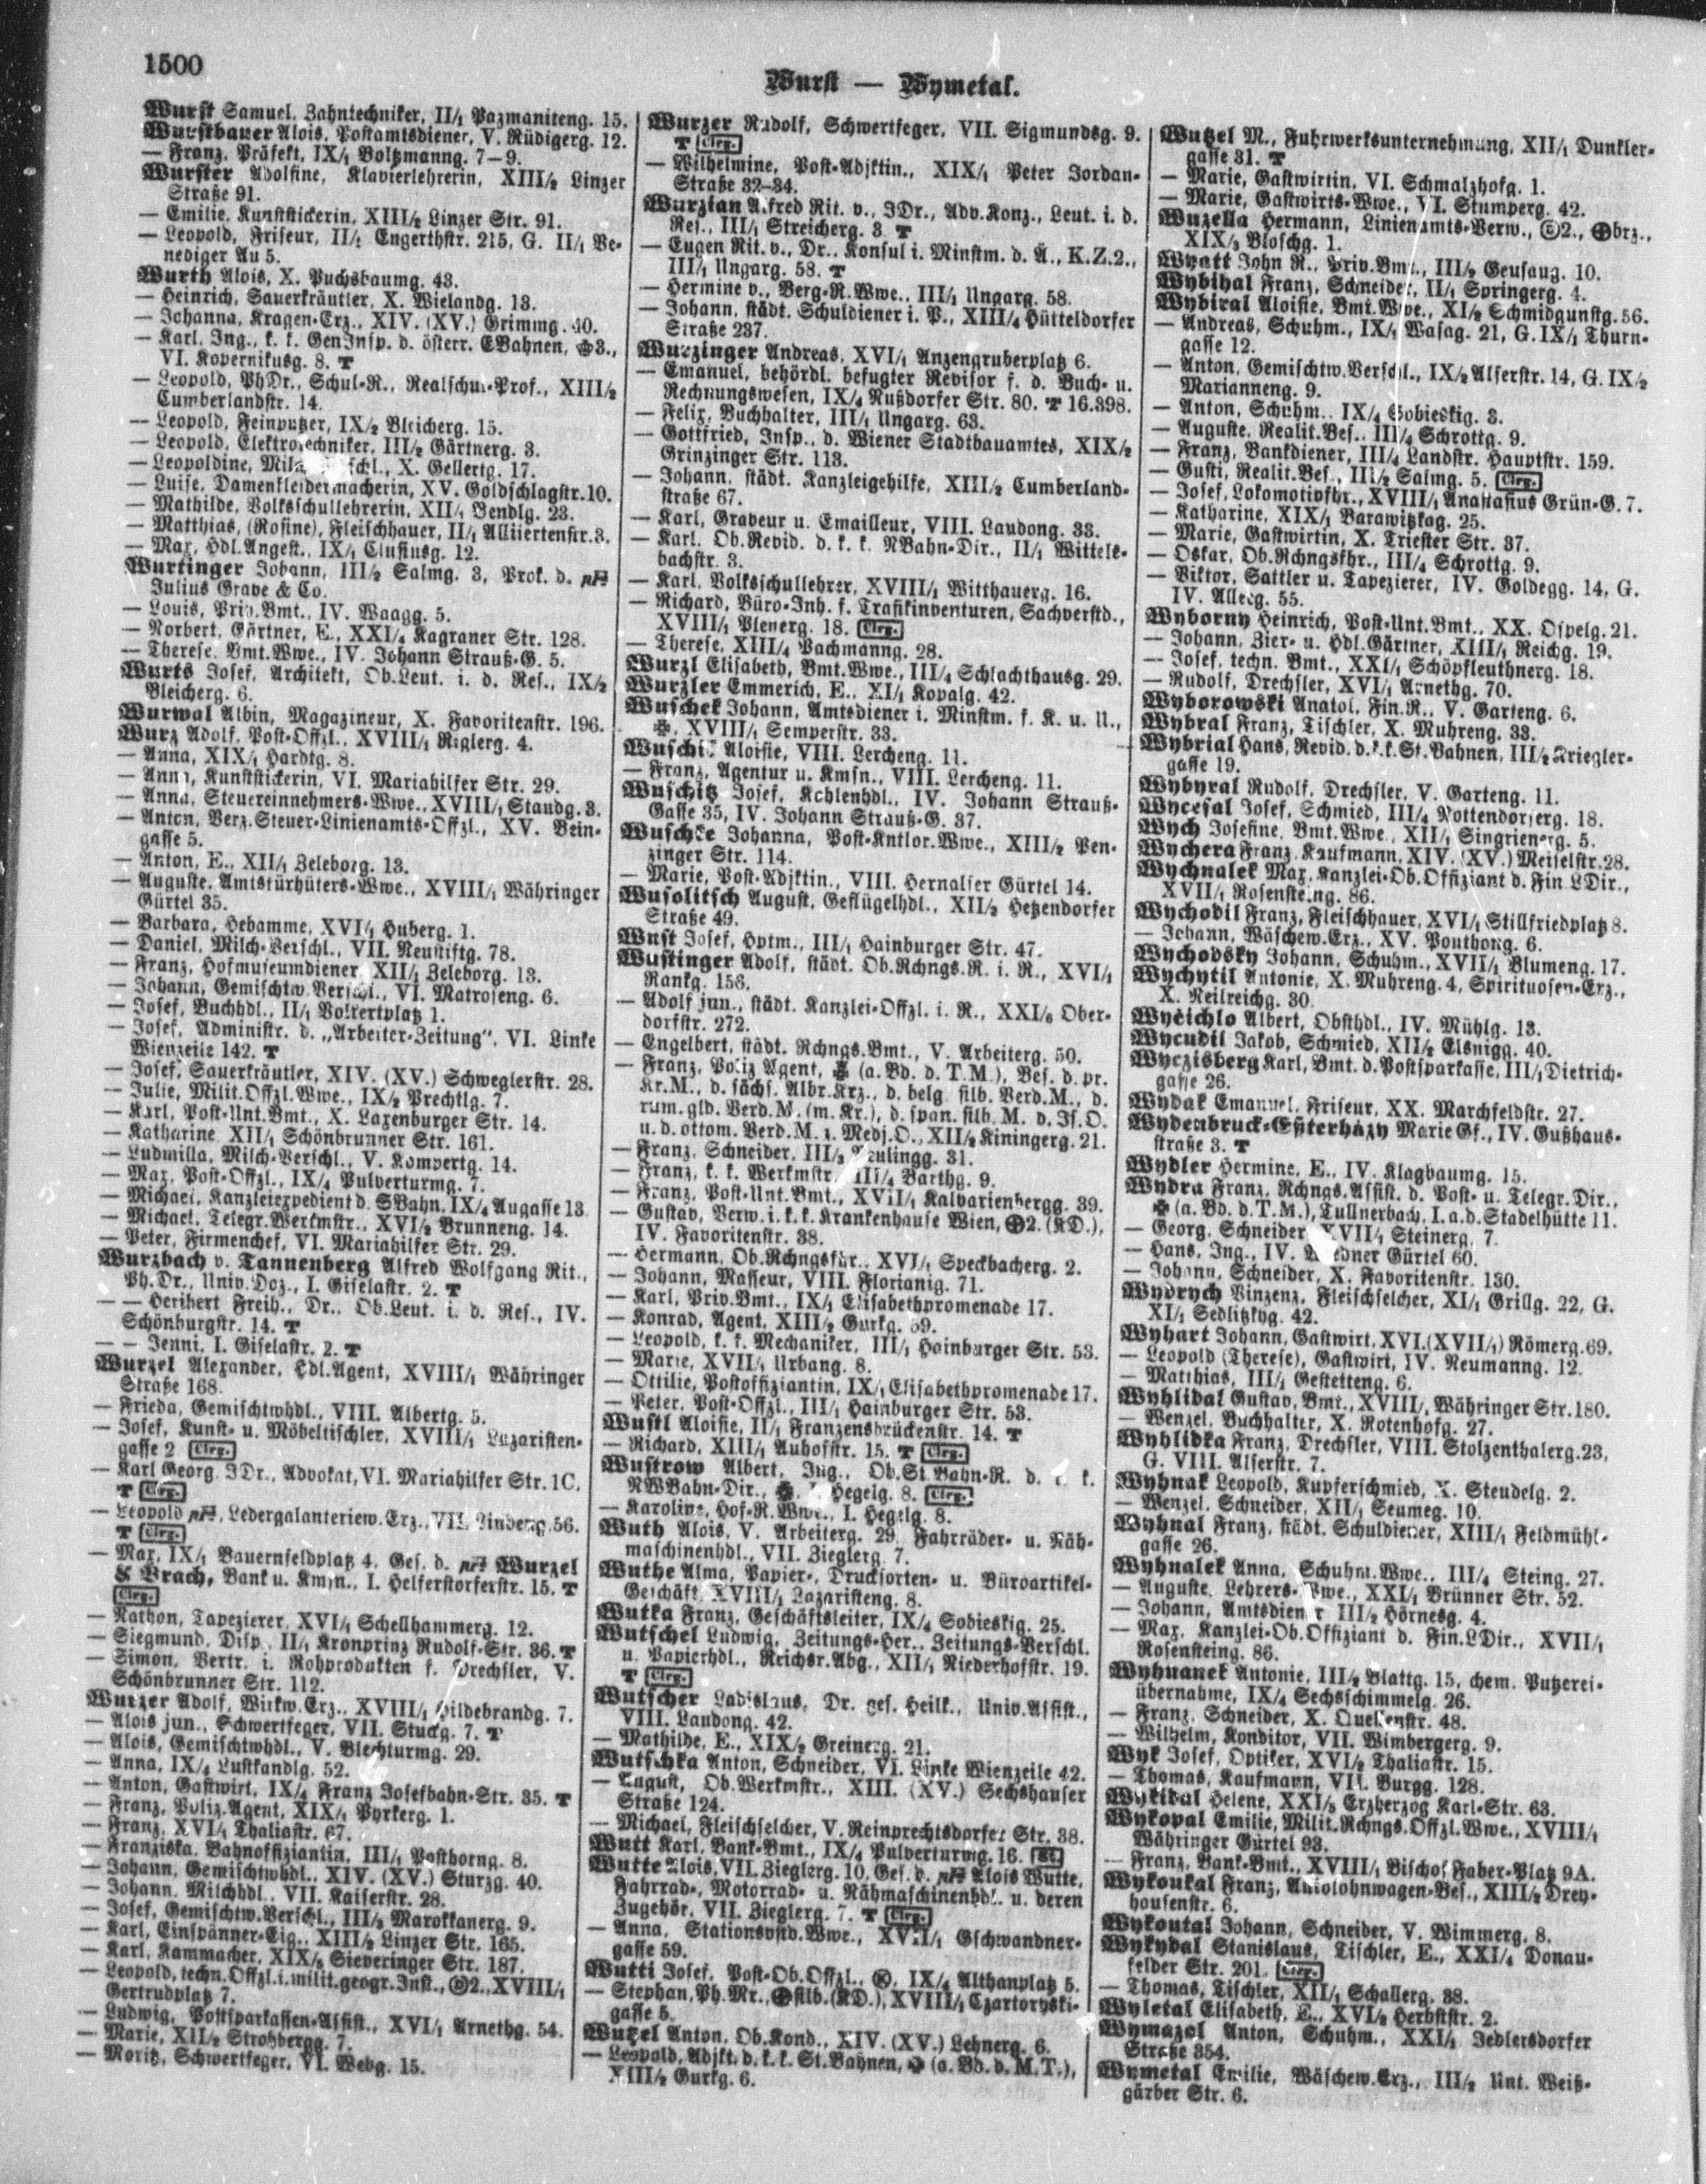 1500
Wurst — Wymetal.
Wurst Samuel, Zahntechniker, II/1 Pazmaniteng. 15.
Wurstbauer Alois, Postamtsdiener, V. Rüdigerg. 12.
— Franz, Präfekt, IX/1 Boltzmanng. 7–9.
Wurster Adolfine, Klavierlehrerin, XIII/2 Linzer
Straße 91.
— Emilie, Kunststickerin, XIII/2 Linzer Str. 91.
— Leopold, Friseur, II/2 Engerthstr. 215, G. II/1 Ve-
nediger Au 5.
Wurth Alois, X. Puchsbaumg. 43.
— Heinrich, Sauerkräutler, X. Wielandg. 13.
— Johanna, Kragen-Erz., XIV. (XV.) Grimmg. 40.
— Karl, Ing., k. k. GenInsp. d. österr. EBahnen, 3.,
VI. Kopernikusg. 8. T
— Leopold, PhDr., Schul-R., Realschul-Prof., XIII/2
Cumberlandstr. 14.
— Leopold, Feinputzer, IX/2 Bleicherg. 15.
— Leopold, Elektrotechniker, III/2 Gärtnerg. 3.
— Leopoldine, X. Gellertg. 17.
— Luise, Damenkleidermacherin, XV. Goldschlagstr. 10.
— Mathilde, Volksschullehrerin, XII/1 Bendlg. 23.
— Matthias, (Rosine), Fleischhauer, II/1 Alliiertenstr. 3.
— Max, Hdl.Angest., IX/1 Clusiusg. 12.
Wurtinger Johann, III/2 Salmg. 3, Prok. d.
Julius Grave & Co.
— Louis, Priv.Bmt., IV. Waagg. 5.
— Norbert, Gärtner, E., XXI/4 Kagraner Str. 128.
— Therese, Bmt.Wwe., IV. Johann Strauß-G. 5.
Wurts Josef, Architekt, Ob.Leut. i. d. Res., IX/2
Bleicherg. 6.
Wurwal Albin, Magazineur, X. Favoritenstr. 196.
Wurz Adolf, Post-Offzl., XVIII/1 Riglerg. 4.
— Anna, XIX/1 Hardtg. 8.
— Anna, Kunststickerin, VI. Mariahilfer Str. 29.
— Anna, Steuereinnehmers-Wwe., XVIII/1 Staudg. 3.
— Anton, Verz.Steuer-Linienamts-Offzl., XV. Bein-
gasse 5.
— Anton, E., XII/1 Zeleborg. 13.
— Auguste, Amtstürhüters-Wwe., XVIII/1 Währinger
Gürtel 35.
— Barbara, Hebamme, XVI/1 Huberg. 1.
— Daniel, Milch-Verschl., VII. Neustiftg. 78.
— Franz, Hofmuseumdiener, XII/1 Zeleborg. 13.
— Johann, Gemischtw.Verschl., VI. Matroseng. 6.
— Josef, Buchhdl., II/1 Volkertplatz 1.
— Josef, Administr. d. „Arbeiter-Zeitung“, VI. Linke
Wienzeile 142. T
— Josef, Sauerkräutler, XIV. (XV.) Schweglerstr. 28.
— Julie, Milit.Offzl.Wwe., IX/2 Prechtlg. 7.
— Karl, Post-Unt.Bmt., X. Laxenburger Str. 14.
— Katharine, XII/1 Schönbrunner Str. 161.
— Ludmilla, Milch-Verschl., V. Kompertg. 14.
— Max, Post-Offzl., IX/4 Pulverturmg. 7.
— Michael, Kanzleiexpedient d. SBahn, IX/4 Augasse 13.
— Michael, Telegr.Werkmstr., XVI/2 Brunneng. 14.
— Peter, Firmenchef, VI. Mariahilfer Str. 29.
Wurzbach v. Tannenberg Alfred Wolfgang Rit.,
Ph.Dr., Univ.Doz., I. Giselastr. 2. T
— — Heribert Freih., Dr., Ob.Leut. i. d. Res., IV.
Schönburgstr. 14. T
— — Jenni, I. Giselastr. 2. T
Wurzel Alexander, Hdl.Agent, XVIII/1 Währinger
Straße 168.
— Frieda, Gemischtwhdl., VIII. Albertg. 5.
— Josef, Kunst- u. Möbeltischler, XVIII/1 Lazaristen-
gasse 2 Clrg.
— Karl Georg, JDr., Advokat, VI. Mariahilfer Str. 1C.
T Clrg.
— Leopold, Ledergalanteriew.Erz., VII. Lindeng. 56.
T Clrg.
— Max, IX/1 Bauernfeldplatz 4, Ges. d. Wurzel
& Brach, Bank u. Kmsn., I. Helferstorferstr. 15. T
Clrg.
— Nathon, Tapezierer, XVI/1 Schellhammerg. 12.
— Siegmund, Disp., II/1 Kronprinz Rudolf-Str. 36. T
— Simon, Vertr. i. Rohprodukten f. Drechsler, V.
Schönbrunner Str. 112.
Wurzer Adolf, Wirkw.Erz., XVIII/1 Hildebrandg. 7.
— Alois jun., Schwertfeger, VII. Stuckg. 7. T
— Alois, Gemischtwhdl., V. Blechturmg. 29.
— Anna, IX/4 Lustkandlg. 52.
— Anton, Gastwirt, IX/4 Franz Josefbahn-Str. 35. T
— Franz, Poliz.Agent, XIX/1 Pyrkerg. 1.
— Franz, XVI/1 Thaliastr. 67.
— Franziska, Bahnoffiziantin, III/1 Posthorng. 8.
— Johann, Gemischtwhdl., XIV. (XV.) Sturzg. 40.
— Johann, Milchhdl., VII. Kaiserstr. 28.
— Josef, Gemischtw.Verschl., III/2 Marokkanerg. 9.
— Karl, Einspänner-Eig., XIII/2 Linzer Str. 165.
— Karl, Kammacher, XIX/3 Sieveringer Str. 187.
— Leopold, techn.Offzl.i.milit.geogr.Inst., 2., XVIII/1
Gertrudplatz 7.
— Ludwig, Postsparkassen-Assist., XVI/1 Arnethg. 54.
— Marie, XII/2 Stroßbergg. 7.
— Moritz, Schwertfeger, VI. Webg. 15.
Wurzer Rudolf, Schwertfeger, VII. Sigmundsg. 9.
T Clrg.
— Wilhelmine, Post-Adjktin., XIX/1 Peter Jordan-
Straße 32–34.
Wurzian Alfred Rit. v., JDr., Adv.Konz., Leut. i. d.
Res., III/1 Streicherg. 3. T
— Eugen Rit. v., Dr., Konsul i. Minstm. d. Ä., K.Z.2.,
III/1 Ungarg. 58. T
— Hermine v., Berg-R.Wwe., III/1 Ungarg. 58.
— Johann, städt. Schuldiener i. P., XIII/4 Hütteldorfer
Straße 237.
Wurzinger Andreas, XVI/1 Anzengruberplatz 6.
— Emanuel, behördl. befugter Revisor f. d. Buch- u.
Rechnungswesen, IX/4 Nußdorfer Str. 80. T 16.398.
— Felix, Buchhalter, III/1 Ungarg. 63.
— Gottfried, Insp., d. Wiener Stadtbauamtes, XIX/2
Grinzinger Str. 113.
— Johann, städt. Kanzleigehilfe, XIII/2 Cumberland-
straße 67.
— Karl, Graveur u. Emailleur, VIII. Laudong. 33.
— Karl, Ob.Revid. d. k. k. NBahn-Dir., II/1 Wittels-
bachstr. 3.
— Karl, Volksschullehrer, XVIII/1 Witthauerg. 16.
— Richard, Büro-Inh. f. Trafikinventuren, Sachverstd.,
XVIII/1 Plenerg. 18. Clrg.
— Therese, XIII/4 Pachmanng. 28.
Wurzl Elisabeth, Bmt.Wwe., III/4 Schlachthausg. 29.
Wurzler Emmerich, E., XI/1 Kopalg. 42.
Wuschek Johann, Amtsdiener i. Minstm. f. K. u. U.,
XVIII/1 Semperstr. 33.
Aloisie, VIII. Lercheng. 11.
— Franz, Agentur u. Kmsn., VIII. Lercheng. 11.
Wuschitz Josef, Kohlenhdl., IV. Johann Strauß-
Gasse 35, IV. Johann Strauß-G. 37.
Wuschke Johanna, Post-Kntlor.Wwe., XIII/2 Pen-
zinger Str. 114.
— Marie, Post-Adjktin., VIII. Hernalser Gürtel 14.
Wusolitsch August, Geflügelhdl., XII/2 Hetzendorfer
Straße 49.
Wust Josef, Hptm., III/1 Hainburger Str. 47.
Wustinger Adolf, städt. Ob.Rchngs.R. i. R., XVI/1
Rankg. 156.
— Adolf jun., städt. Kanzlei-Offzl. i. R., XXI/6 Ober-
dorfstr. 272.
— Engelbert, städt. Rchngs.Bmt., V. Arbeiterg. 50.
— Franz, Poliz Agent, (a. Bd. d. T.M.), Bes. d. pr.
Kr.M., d. sächs. Albr.Krz., d. belg. silb. Verd.M., d.
rum. gld. Verd.M. (m. Kr.), d. span. silb. M. d. Is.O.
u. d. ottom. Verd.M. z. Medj.O., XII/2 Kiningerg. 21.
— Franz, Schneider, III/2 31.
— Franz, k. k. Werkmstr., III/4 Barthg. 9.
— Franz, Post-Unt.Bmt., XVII/1 Kalvarienbergg. 39.
— Gustav, Verw. i. k. k. Krankenhause Wien, 2. (KD.),
IV. Favoritenstr. 38.
— Hermann, Ob.Rchngsfhr., XVI/1 Speckbacherg. 2.
— Johann, Masseur, VIII. Florianig. 71.
— Karl, Priv.Bmt., IX/1 Elisabethpromenade 17.
— Konrad, Agent, XIII/2 Gurkg. 59.
— Leopold, k. k. Mechaniker, III/1 Hainburger Str. 53.
— Marie, XVII/1 Urbang. 8.
— Ottilie, Postoffiziantin, IX/1 Elisabethpromenade 17.
— Peter, Post-Offzl., III/1 Hainburger Str. 53.
Wustl Aloisie, II/1 Franzensbrückenstr. 14. T
— Richard, XIII/1 Auhofstr. 15. T Clrg.
Wustrow Albert, Ing., Ob.St.Bahn-R. d. k. k.
NWBahn-Dir., I. Hegelg. 8. Clrg.
— Karoline, Hof-R.Wwe., I. Hegelg. 8.
Wuth Alois, V. Arbeiterg. 29, Fahrräder- u. Näh-
maschinenhdl., VII. Zieglerg. 7.
Wuthe Alma, Papier-, Drucksorten- u. Büroartikel-
Geschäft, XVIII/1 Lazaristeng. 8.
Wutka Franz, Geschäftsleiter, IX/4 Sobieskig. 25.
Wutschel Ludwig, Zeitungs-Her., Zeitungs-Verschl.
u. Papierhdl., Reichsr.Abg., XII/1 Niederhofstr. 19.
T Clrg.
Wutscher Ladislaus, Dr. ges. Heilk., Univ.Assist.,
VIII. Laudong. 42.
— Mathilde, E., XIX/2 Greinerg. 21.
Wutschka Anton, Schneider, VI. Linke Wienzeile 42.
— August, Ob.Werkmstr., XIII. (XV.) Sechshauser
Straße 124.
— Michael, Fleischselcher, V. Reinprechtsdorfer Str. 38.
Wutt Karl, Bank-Bmt., IX/4 Pulverturmg. 16.
Wutte Alois, VII. Zieglerg. 10, Ges. d. Alois Wutte,
Fahrrad-, Motorrad- u. Nähmaschinenhdl. u. deren
Zugehör, VII. Zieglerg. 7. T Clrg.
— Anna, Stationsvstd.Wwe., XVII/1 Gschwandner-
gasse 59.
Wutti Josef, Post-Ob.Offzl., IX/4 Althanplatz 5.
— Stephan, Ph.Mr., silb. (KD.), XVIII/1 Czartoryski-
gasse 5.
Wutzel Anton, Ob.Kond., XIV. (XV.) Lehnerg. 6.
— Leopold, Adjkt. d. k. k. St.Bahnen, (a. Bd. d. M.T.),
XIII/2 Gurkg. 6.
Wutzel M., Fuhrwerksunternehmung, XII/1 Dunkler-
gasse 31. T
— Marie, Gastwirtin, VI. Schmalzhofg. 1.
— Marie, Gastwirts-Wwe., VI. Stumperg. 42.
Wuzella Hermann, Linienamts-Verw., 2., brz.,
XIX/3 Bloschg. 1.
Wyatt John R., Priv.Bmt., III/2 Geusaug. 10.
Wybihal Franz, Schneider, II/1 Springerg. 4.
Wybiral Aloisie, Bmt.Wwe., XI/2 Schmidgunstg. 56.
— Andreas, Schuhm., IX/1 Wasag. 21, G. IX/1 Thurn-
gasse 12.
— Anton, Gemischtw.Verschl., IX/2 Alserstr. 14, G. IX/2
Marianneng. 9.
— Anton, Schuhm., IX/4 Sobieskig. 3.
— Auguste, Realit.Bes., III/4 Schrottg. 9.
— Franz, Bankdiener, III/4 Landstr. Hauptstr. 159.
— Gusti, Realit.Bes., III/2 Salmg. 5. Clrg.
— Josef, Lokomotivfhr., XVIII/1 Anastasius Grün-G. 7.
— Katharine, XIX/1 Barawitzkag. 25.
— Marie, Gastwirtin, X. Triester Str. 37.
— Oskar, Ob.Rchngsfhr., III/4 Schrottg. 9.
— Viktor, Sattler u. Tapezierer, IV. Goldegg. 14, G.
IV. Alleeg. 55.
Wyborny Heinrich, Post-Unt.Bmt., XX. Ospelg. 21.
— Johann, Zier- u. Hdl.Gärtner, XIII/1 Reichg. 19.
— Josef, techn. Bmt., XXI/4 Schöpfleuthnerg. 18.
— Rudolf, Drechsler, XVI/1 Arnethg. 70.
Wyborowski Anatol, Fin.R., V. Garteng. 6.
Wybral Franz, Tischler, X. Muhreng. 33.
Wybrial Hans, Revid. d. k. k. St.Bahnen, III/2 Kriegler-
gasse 19.
Wybyral Rudolf, Drechsler, V. Garteng. 11.
Wycesal Josef, Schmied, III/4 Nottendorferg. 18.
Wych Josefine, Bmt.Wwe., XII/1 Singrienerg. 5.
Wychera Franz, Kaufmann, XIV. (XV.) Meiselstr. 28.
Wychnalek Max, Kanzlei-Ob.Offiziant d. Fin LDir.,
XVII/1 Rosensteing. 86.
Wychodil Franz, Fleischhauer, XVI/1 Stillfriedplatz 8.
— Johann, Wäschew.Erz., XV. Pouthong. 6.
Wychodsky Johann, Schuhm., XVII/1 Blumeng. 17.
Wychytil Antonie, X. Muhreng. 4, Spirituosen-Erz.,
X. Neilreichg. 30.
Wyčichlo Albert, Obsthdl., IV. Mühlg. 13.
Wycudil Jakob, Schmied, XII/2 Elsnigg. 40.
Wyczisberg Karl, Bmt. d. Postsparkasse, III/1 Dietrich-
gasse 26.
Wydak Emanuel, Friseur, XX. Marchfeldstr. 27.
Wydenbruck-Esterházy Marie Gf., IV. Gußhaus-
straße 3. T
Wydler Hermine, E., IV. Klagbaumg. 15.
Wydra Franz, Rchngs.Assist. d. Post- u. Telegr.Dir.,
(a. Bd. d. T.M.), Tullnerbach, I. a. d. Stadelhütte 11.
— Georg, Schneider, XVII/1 Steinerg. 7.
— Hans, Ing., IV. Wiedner Gürtel 60.
— Johann, Schneider, X. Favoritenstr. 130.
Wydrych Vinzenz, Fleischselcher, XI/1 Grillg. 22, G.
XI/1 Sedlitzkyg. 42.
Wyhart Johann, Gastwirt, XVI. (XVII/1) Römerg. 69.
— Leopold (Therese), Gastwirt, IV. Neumanng. 12.
— Matthias, III/1 Gestetteng. 6.
Wyhlidal Gustav, Bmt., XVIII/1 Währinger Str. 180.
— Wenzel, Buchhalter, X. Rotenhofg. 27.
Wyhlidka Franz, Drechsler, VIII. Stolzenthalerg. 23,
G. VIII. Alserstr. 7.
Wyhnak Leopold, Kupferschmied, X. Steudelg. 2.
— Wenzel, Schneider, XII/1 Seumeg. 10.
Wyhnal Franz, städt. Schuldiener, XIII/1 Feldmühl-
gasse 26.
Wyhnalek Anna, Schuhm.Wwe., III/4 Steing. 27.
— Auguste, Lehrers-Wwe., XXI/1 Brünner Str. 52.
— Johann, Amtsdiener, III/2 Hörnesg. 4.
— Max, Kanzlei-Ob.Offiziant d. Fin.LDir., XVII/1
Rosensteing. 86.
Wyhnanek Antonie, III/2 Blattg. 15, chem. Putzerei-
übernahme, IX/4 Sechsschimmelg. 26.
— Franz, Schneider, X. Quellenstr. 48.
— Wilhelm, Konditor, VII. Wimbergerg. 9.
Wyk Josef, Optiker, XVI/2 Thaliastr. 15.
— Thomas, Kaufmann, VII. Burgg. 128.
Wykidal Helene, XXI/3 Erzherzog Karl-Str. 63.
Wykopal Emilie, Milit.Rchngs.Offzl.Wwe., XVIII/1
Währinger Gürtel 93.
— Franz, Bank-Bmt., XVIII/1 Bischof Faber-Platz 9A.
Wykoukal Franz, Autolohnwagen-Bes., XIII/2 Drey-
hausenstr. 6.
Wykoutal Johann, Schneider, V. Wimmerg. 8.
Wykydal Stanislaus, Tischler, E., XXI/4 Donau-
felder Str. 201. Clrg.
— Thomas, Tischler, XII/1 Schallerg. 38.
Wyletal Elisabeth, E., XVI/2 Herbststr. 2.
Wymazal Anton, Schuhm., XXI/1 Jedlersdorfer
Straße 354.
Wymetal Emilie, Wäschew.Erz., III/2 Unt. Weiß-
gärber Str. 6.